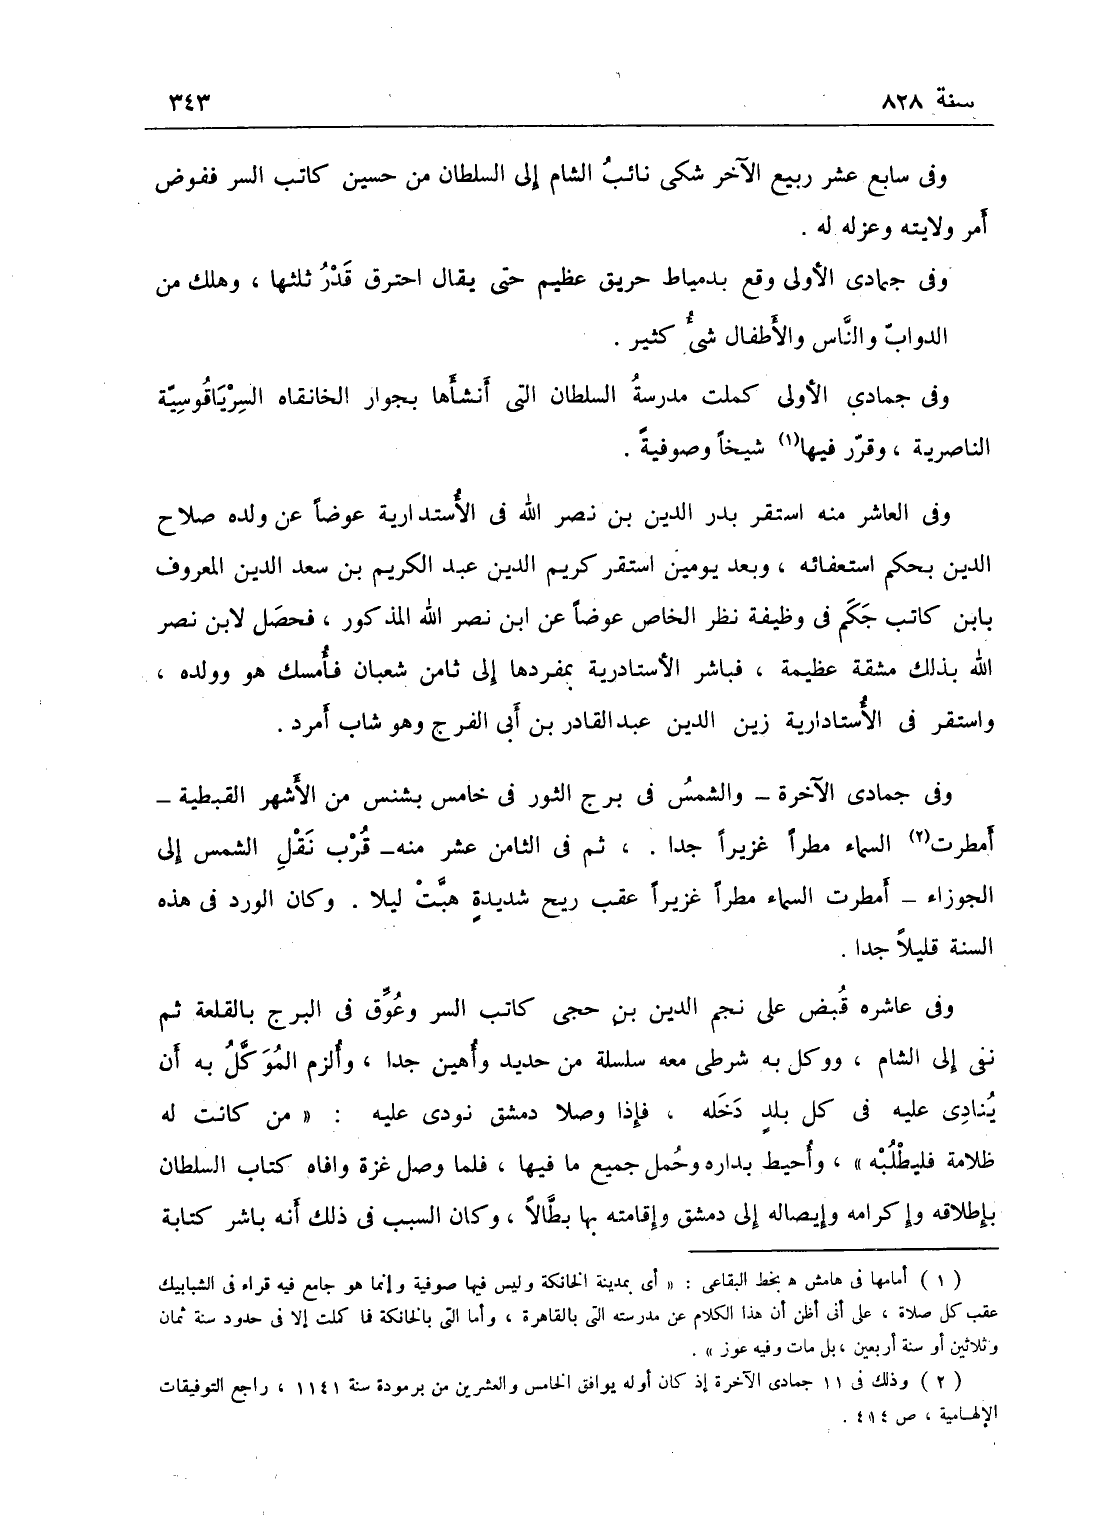 سنة ٨٢٨
٣٤٣
وفى سابع عشر ربيع الآخر شكى نائبُ الشام إلى السلطان من حسين كاتب السر ففوض
أَمر ولايته وعزله له .
وفى جمادى الأولى وقع بدمياط حريق عظيم حتى يقال احترق قَدْرُ ثلثها ، وهلك من
الدوابّ والنَّاس والأَطفال شىءُ كثير .
وفى جمادى الأولى كملت مدرسةُ السلطان التى أَنشأَها بجوار الخانقاه السِرْيَاقُوسِيّة
الناصرية ، وقرّر فيها(١) شيخاً وصوفيةً .
وفى العاشر منه استقر بدر الدين بن نصر الله فى الأُستدارية عوضاً عن ولده صلاح
الدين بحكم استعفائه ، وبعد يومين استقر كريم الدين عبد الكريم بن سعد الدين المعروف
بابن كاتب جَكَم فى وظيفة نظر الخاص عوضاً عن ابن نصر الله المذكور ، فحصَل لابن نصر
الله بذلك مشقة عظيمة ، فباشر الأستادرية بمفردها إلى ثامن شعبان فأُمسك هو وولده ،
واستقر فى الأُستادارية زين الدين عبدالقادر بن أَبى الفرج وهو شاب أَمرد .
وفى جمادى الآخرة – والشمسُ فى برج الثور فى خامس بشنس من الأَشهر القبطية –
أَمطرت(٢) السماء مطراً غزيراً جدا . ، ثم فى الثامن عشر منه– قُرْب نَقْلِ الشمس إلى
الجوزاء – أَمطرت السماء مطراً غزيراً عقب ريح شديدةٍ هبَّتْ ليلا . وكان الورد فى هذه
السنة قليلاً جدا .
وفى عاشره قُبض على نجم الدين بن حجى كاتب السر وعُوِّق فى البرج بالقلعة ثم
نفى إلى الشام ، ووكل به شرطى معه سلسلة من حديد وأُهين جدا ، وأُلزم المُوَكَّلُ به أَن
يُنادِى عليه فى كل بلدٍ دَخَله ، فإِذا وصلا دمشق نودى عليه : « من كانت له
ظلامة فليطْلُبْه » ، وأُحيط بداره وحُمل جميع ما فيها ، فلما وصل غزة وافاه كتاب السلطان
بإِطلاقه وإكرامه وإيصاله إلى دمشق وإقامته بها بطَّالاً ، وكان السبب فى ذلك أَنه باشر كتابة
( ١ ) أمامها فى هامش ﻫ بخط البقاعى : « أى بمدينة الخانكة وليس فيها صوفية وإنما هو جامع فيه قراء فى الشبابيك
عقب كل صلاة ، على أنى أظن أن هذا الكلام عن مدرسته التى بالقاهرة ، وأما التى بالخانكة فما كملت إلا فى حدود سنة ثمان
وثلاثين أو سنة أربعين ، بل مات وفيه عوز » .
( ٢ ) وذلك فى ١١ جمادى الآخرة إذ كان أوله يوافق الخامس والعشرين من برمودة سنة ١١٤١ ، راجع التوفيقات
الإلهامية ، ص ٤١٤ .